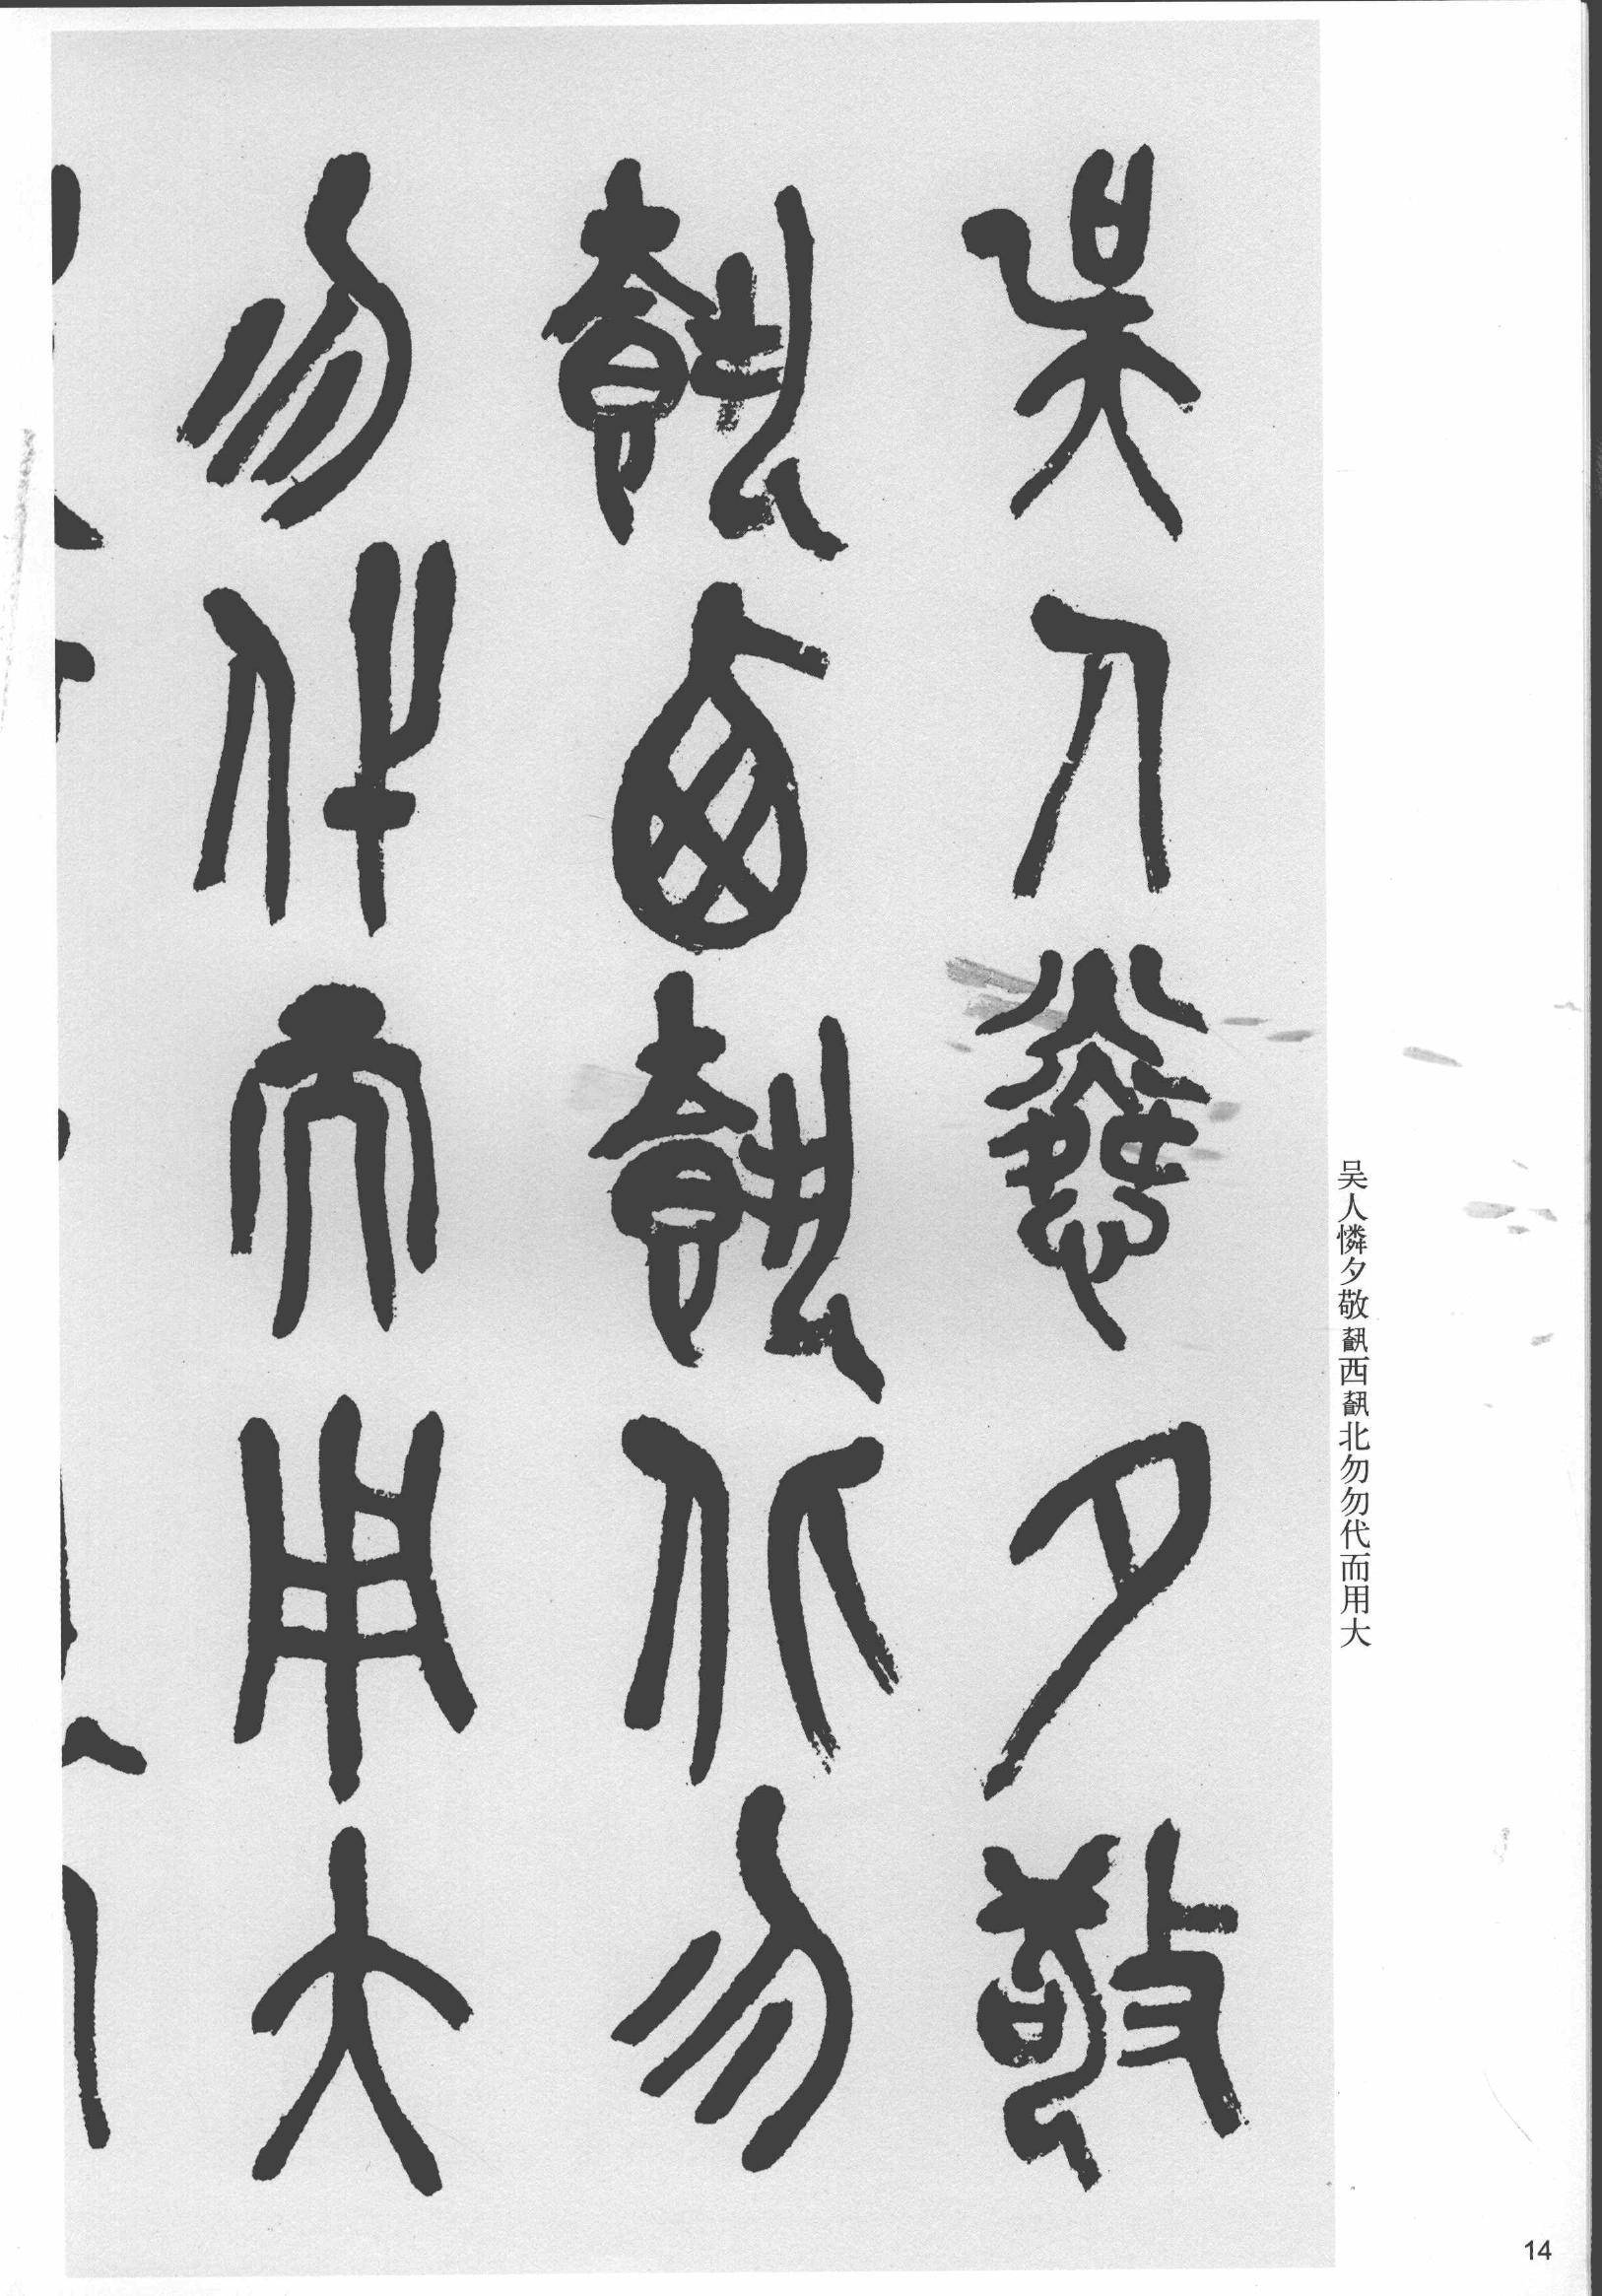 吴人憐夕敬
𩛥西𩛥北勿
勿代而用大
吴人憐夕敬𩛥西𩛥北勿勿代而用大
14